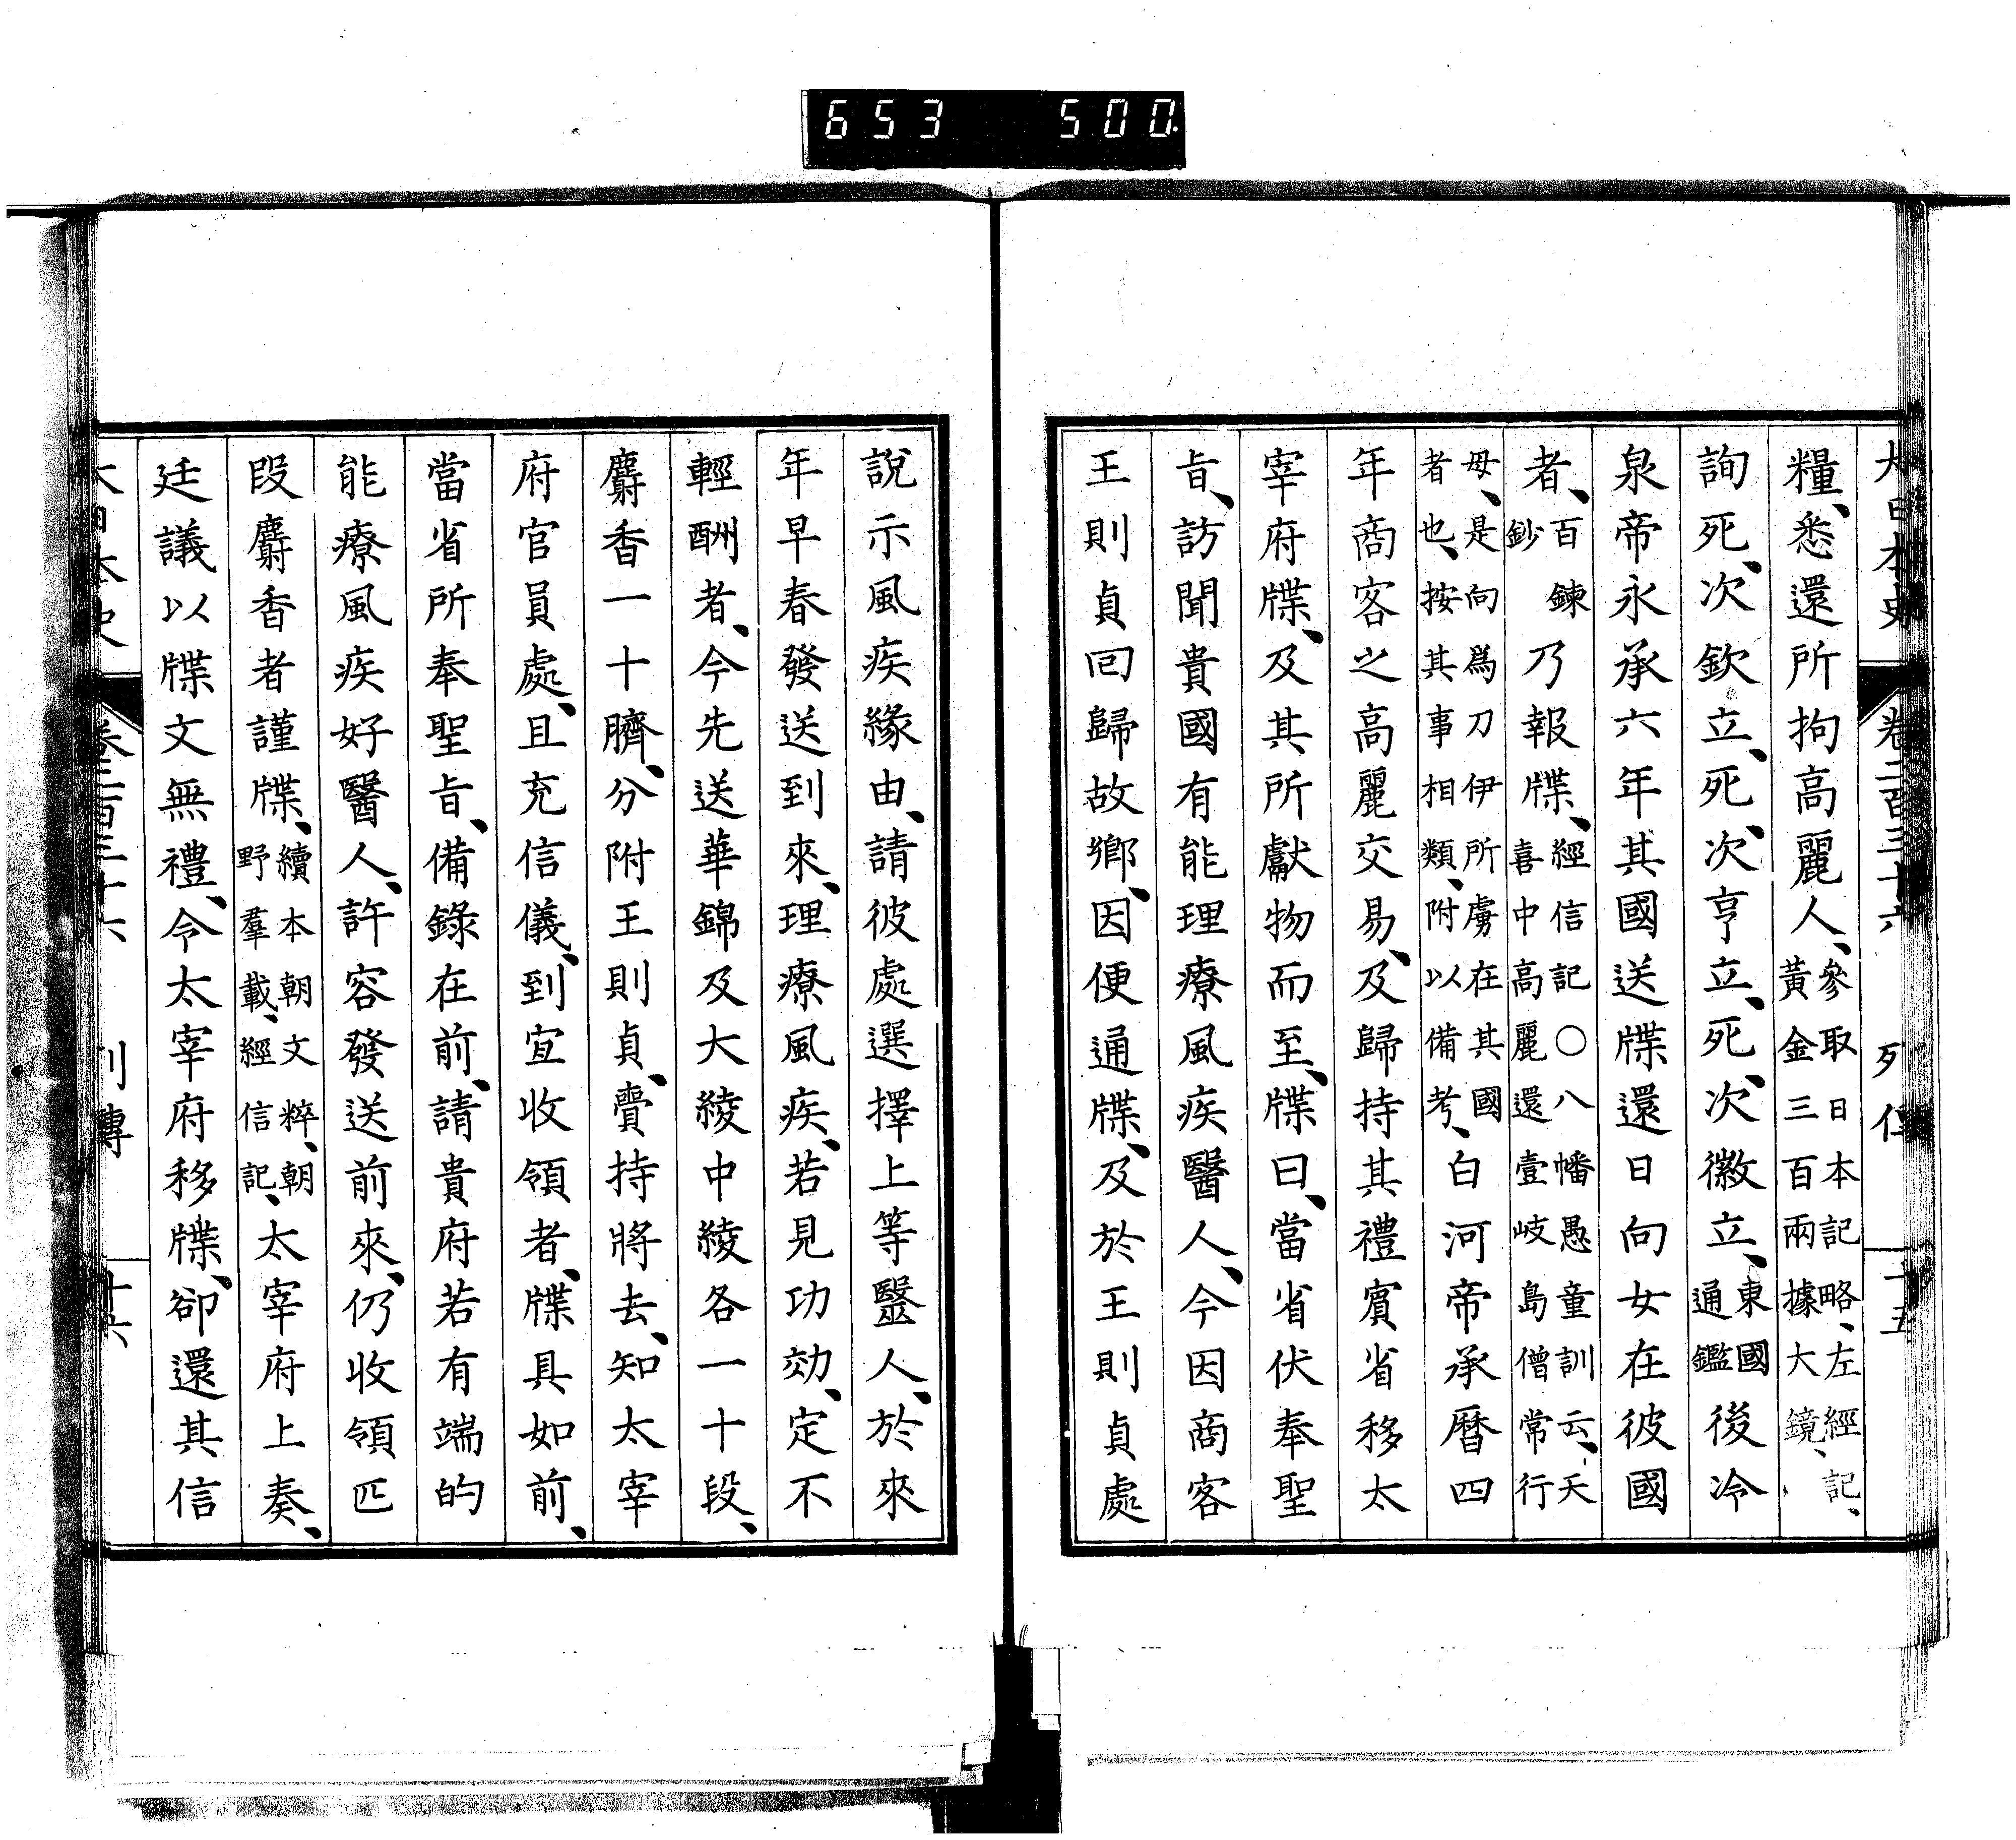 653 500.
大日本史 卷二百三十六 列傳 十五
糧、悉還所拘高麗人、參取日本記略、左經記、黃金三百兩據大鏡、
詢死、次欽立、死、次亨立、死、次徽立、東國通鑑後冷
泉帝永承六年其國送牒還日向女在彼國
者、百鍊鈔乃報牒、經信記〇八幡愚童訓云、天喜中高麗還壹岐島僧常行
母、是向爲刀伊所虜在其國者也、按其事相類、附以備考、白河帝承曆四
年商客之高麗交易、及歸持其禮賓省移太
宰府牒、及其所獻物而至、牒曰、當省伏奉聖
旨、訪聞貴國有能理療風疾醫人、今因商客
王則貞回歸故鄉、因便通牒、及於王則貞處
說示風疾緣由、請彼處選擇上等毉人、於來
年早春發送到來、理療風疾、若見功効、定不
輕酬者、今先送華錦及大綾中綾各一十段、
麝香一十臍、分附王則貞、賷持將去、知太宰
府官員處、且充信儀、到宜收領者、牒具如前、
當省所奉聖旨、備錄在前、請貴府若有端的
能療風疾好醫人、許容發送前來、仍收領匹
段麝香者謹牒、續本朝文粹、朝野羣載、經信記、太宰府上奏、
廷議以牒文無禮、令太宰府移牒、卻還其信
大日本史 卷二百三十六 列傳 十六